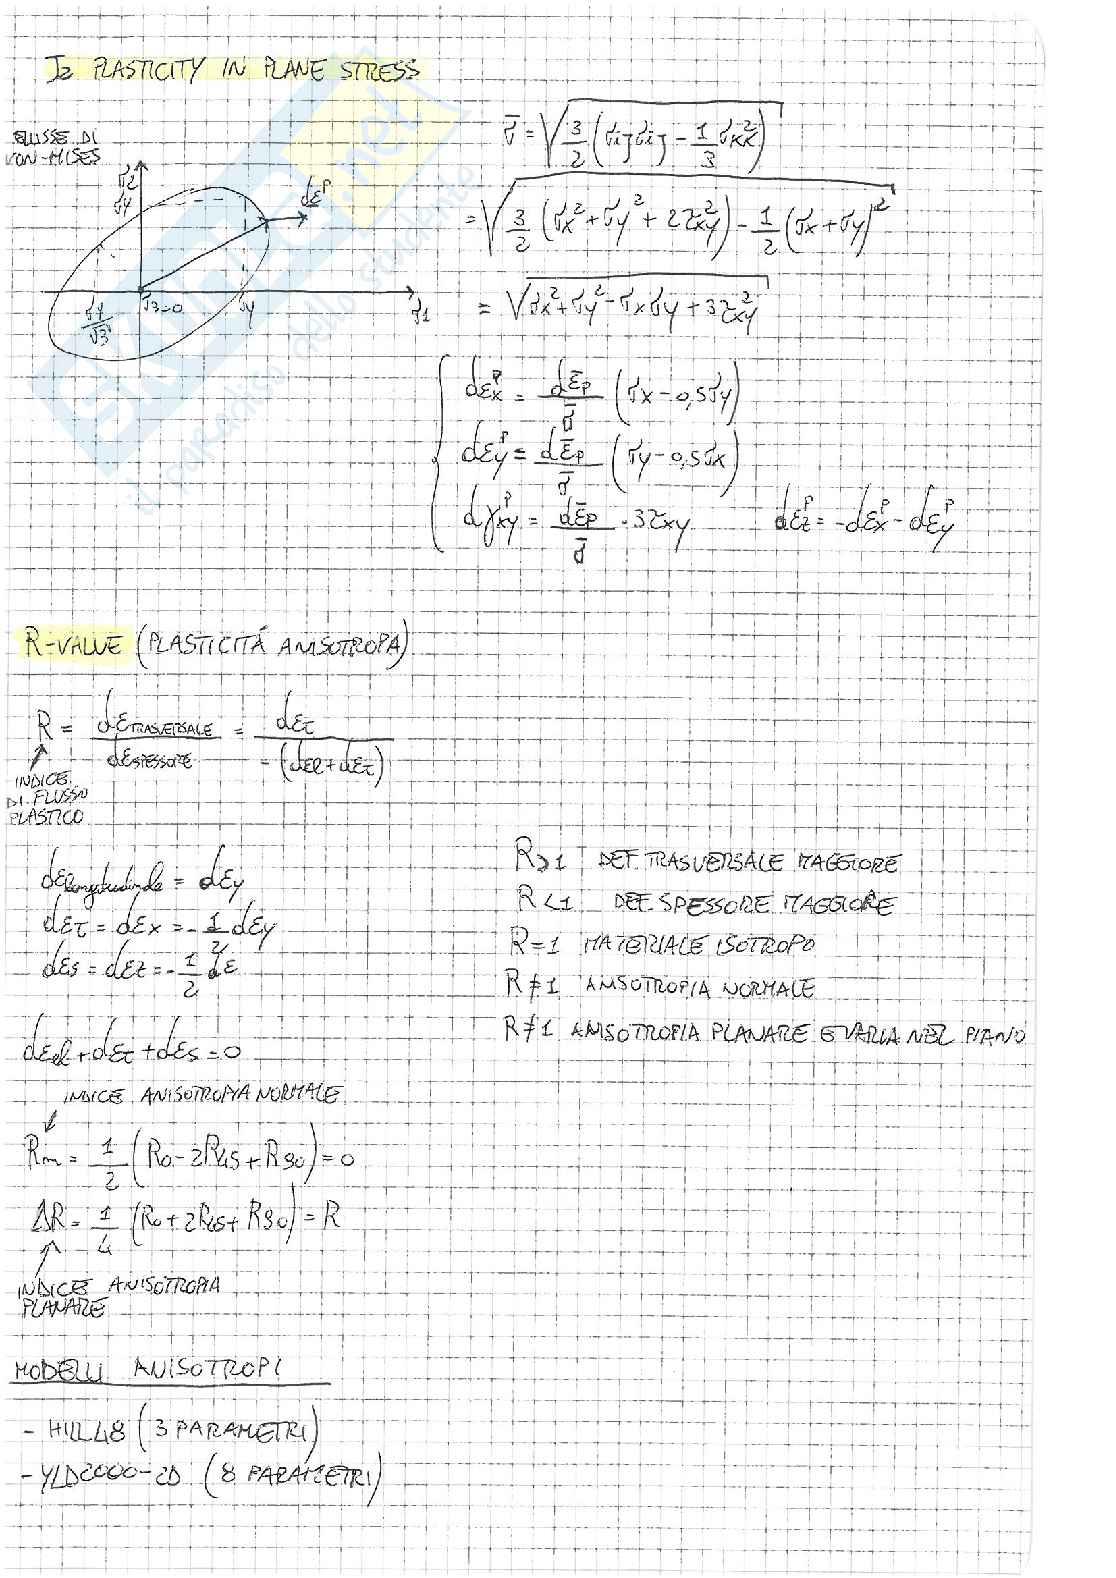 J2 PLASTICITY IN PLANE STRESS
ELLISSE DI
VON-MISES
σ2
σy
dε^P
σy/√3
σ3=0
σy
σ1
σ̄ = √(3/2 (σij σij - 1/3 σkk²))
= √(3/2 (σx² + σy² + 2τxy²) - 1/2 (σx + σy)²)
= √(σx² + σy² - σxσy + 3τxy²)
dεx^P = dε̄p/σ̄ (σx - 0,5σy)
dεy^P = dε̄p/σ̄ (σy - 0,5σx)
dγxy^P = dε̄p/σ̄ · 3τxy dεz^P = -dεx^P - dεy^P
R-VALUE (PLASTICITÁ ANISOTROPA)
R = dεTRASVERSALE/dεSPESSORE = dετ/-(dεl + dετ)
INDICE
DI FLUSSO
PLASTICO
dεlongitudinale = dεy
dετ = dεx = -1/2 dεy
dεs = dεz = -1/2 dε
dεl + dετ + dεs = 0
R>1 DEF. TRASVERSALE MAGGIORE
R<1 DEF. SPESSORE MAGGIORE
R=1 MATERIALE ISOTROPO
R≠1 ANISOTROPIA NORMALE
R≠1 ANISOTROPIA PLANARE E VARIA NEL PIANO
INDICE ANISOTROPIA NORMALE
Rm = 1/2 (R0 - 2R45 + R90) = 0
ΔR = 1/4 (R0 + 2R45 + R90) = R
INDICE ANISOTROPIA
PLANARE
MODELLI ANISOTROPI
- HILL48 (3 PARAMETRI)
- YLD2000-2D (8 PARAMETRI)
Skuola.net
il paradiso dello studente